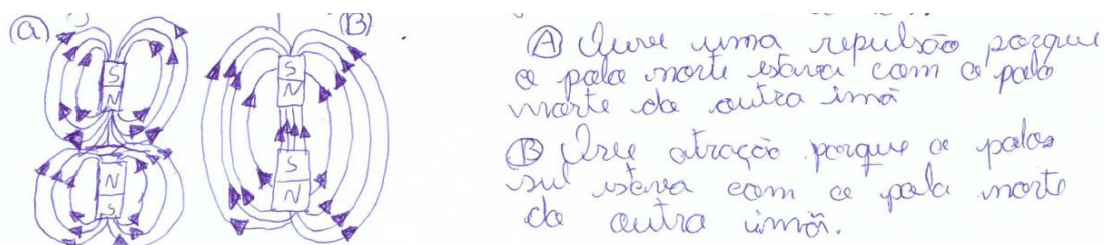 (a)
(B)
S
N
N
S
S
N
S
N
(A) Ouve uma repulsão porque
o polo norte estava com o polo
norte do outro imã
(B) Ove atração porque o polos
sul estava com o polo norte
do outro imã.